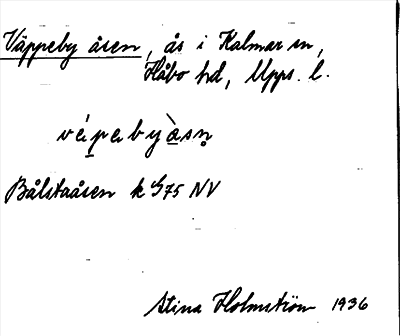 Väppeby åsen, ås i Kalmar sn,
Håbo hd, Upps. l.
vépebyàsn̥
Bålstaåsen k S75 NV
Stina Holmström 1936